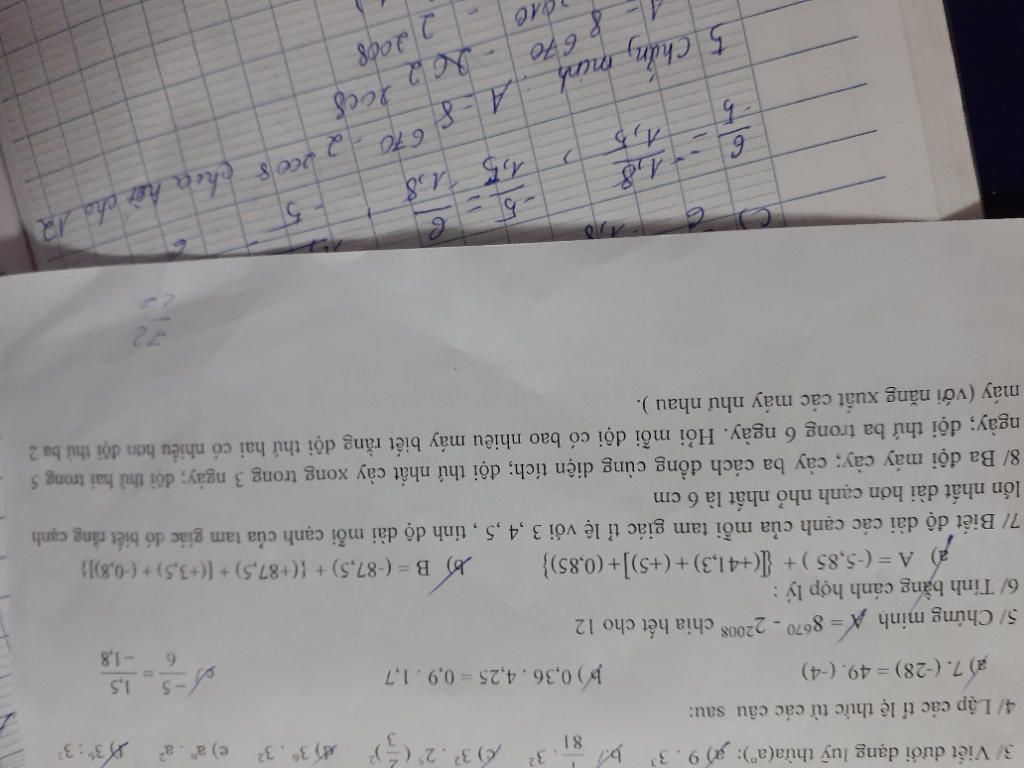 3/ Viết dưới dạng luỹ thừa(aⁿ): a) 9 . 3³ b) 1/81 . 3² c) 3² . 2⁵ . (2/3)² d) 3⁶ . 3² e) aⁿ . a² f) 3⁶ : 3²
4/ Lập các tỉ lệ thức từ các câu sau:
a) 7 . (-28) = 49. (-4) b) 0,36 . 4,25 = 0,9 . 1,7 c) -5/6 = 1,5/-1,8
5/ Chứng minh A = 8⁶⁷⁰ - 2²⁰⁰⁸ chia hết cho 12
6/ Tính bằng cánh hợp lý :
a) A = (-5,85 ) + {[(+41,3) + (+5)] + (0,85)} b) B = (-87,5) + {(+87,5) + [(+3,5) + (-0,8)]}
7/ Biết độ dài các cạnh của mỗi tam giác tỉ lệ với 3 ,4 ,5 , tính độ dài mỗi cạnh của tam giác đó biết rằng cạnh
lớn nhất dài hơn cạnh nhỏ nhất là 6 cm
8/ Ba đội máy cày; cày ba cách đồng cùng diện tích; đội thứ nhất cày xong trong 3 ngày; đội thứ hai trong 5
ngày; đội thứ ba trong 6 ngày. Hỏi mỗi đội có bao nhiêu máy biết rằng đội thứ hai có nhiều hơn đội thứ ba 2
máy (với năng xuất các máy như nhau ).
72
c)
6/-5 = -1,8/1,5 , -5/1,5 = 6/-1,8
5 Chứng minh: A = 8 670 - 2 2008 chia hết cho 12
A = 8 670 - 2 2008